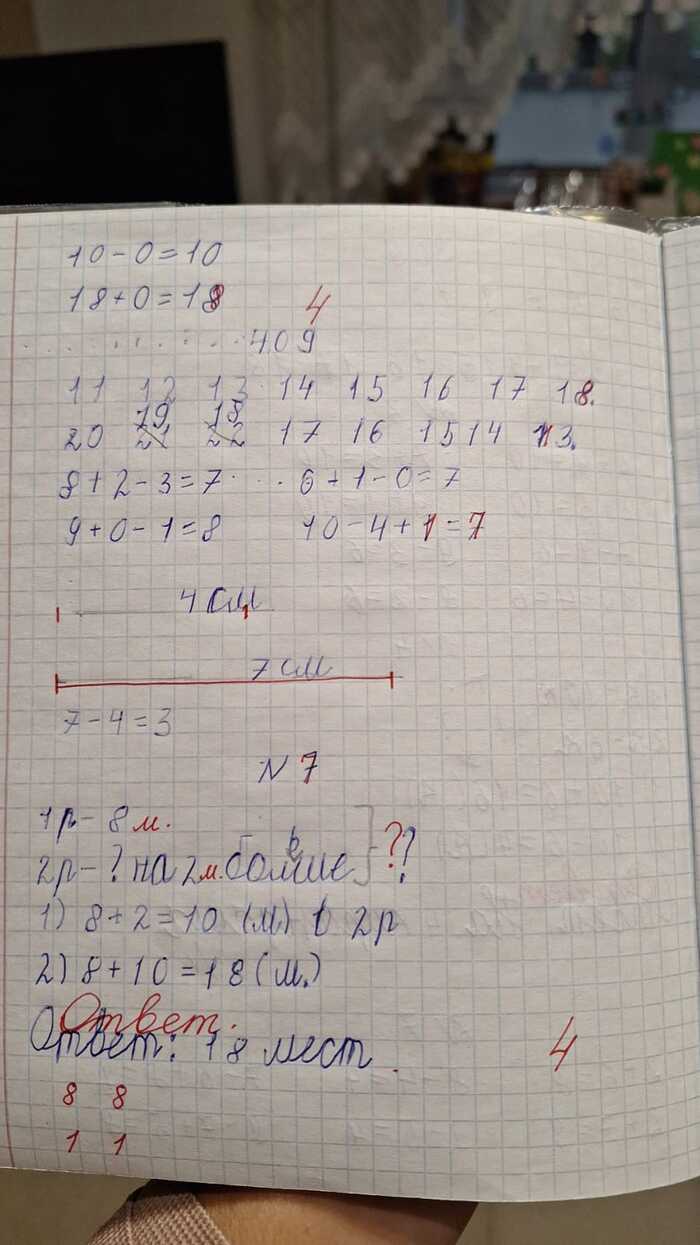 10-0=10
18+0=18
4
409
11 12 13 14 15 16 17 18.
19 18
20 21 22 17 16 15 14 13.
8+2-3=7 6+1-0=7
9+0-1=8 10-4+1=7
4 см
7 см
7-4=3
N 7
1р- 8 м.
2р-? на 2м. больше }??
1) 8+2=10 (м.) в 2р
2) 8+10=18 (м.)
Ответ.
Ответ: 18 мест.
4
8 8
1 1